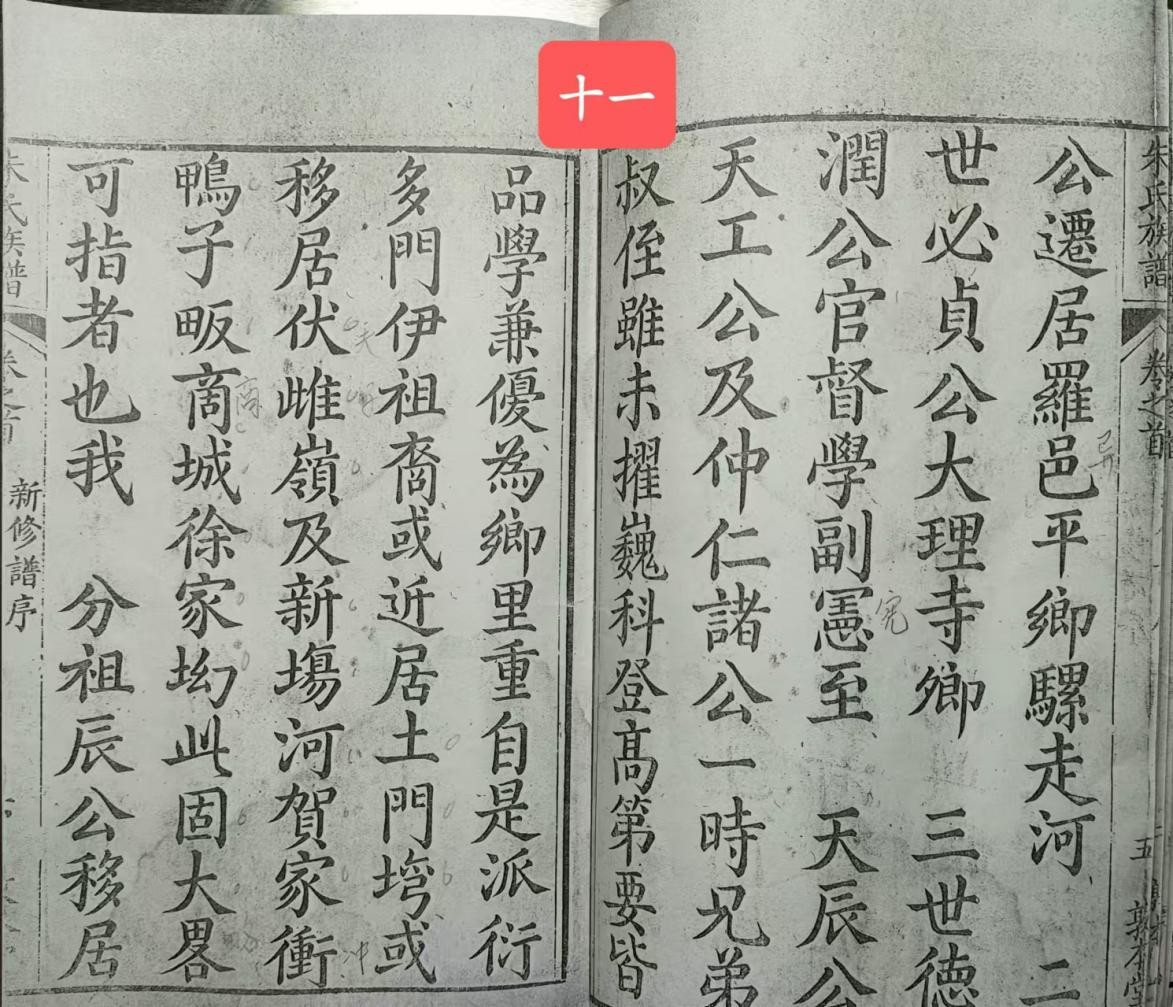 十一
朱氏族譜
卷之首
五
公遷居羅邑平鄉騾走河 二
世必貞公大理寺鄉 三世德
潤公官督學副憲至 天辰公
天工公及仲仁諸公一時兄弟
叔侄雖未擢巍科登高第要皆
品學兼優為鄉里重自是派衍
多門伊祖裔或近居土門塆或
移居伏雌嶺及新塲河賀家衝
鴨子畈啇城徐家坳此固大畧
可指者也我 分祖辰公移居
朱氏族譜
卷之首
新修譜序